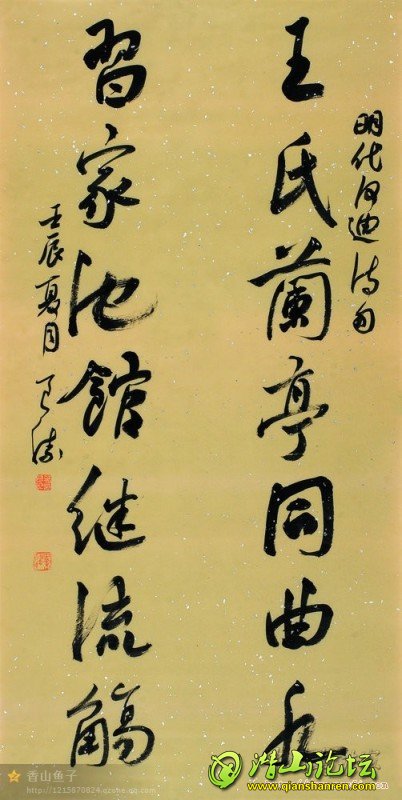 明代何迪诗句
王氏蘭亭同曲水
習家池館继流觴
壬辰夏月
香山鱼子
http://1215870824.qzone.qq.com
潜山论坛
www.qianshanren.com